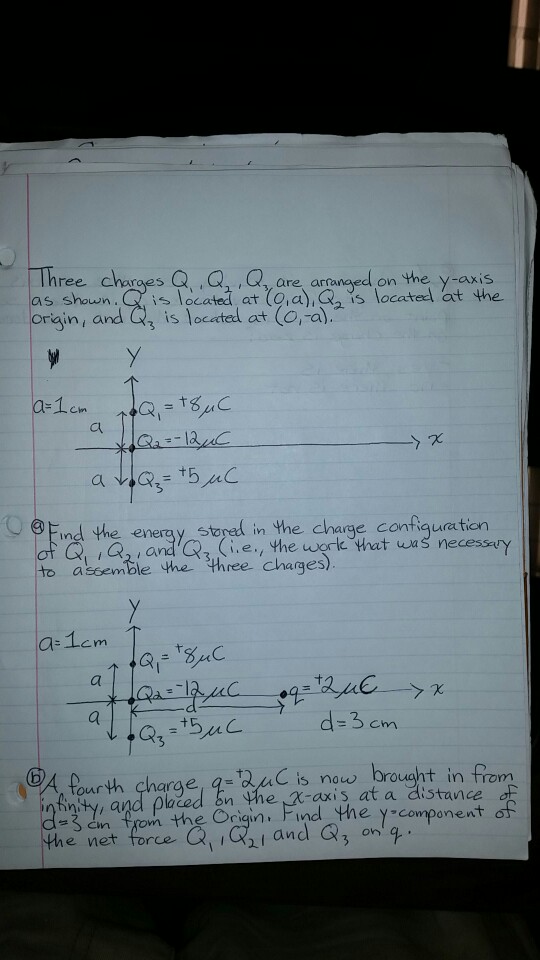 Three charges Q₁, Q₂, Q₃ are arranged on the y-axis
as shown. Q₁ is located at (0,a), Q₂ is located at the
origin, and Q₃ is located at (0,-a).
Y
a=1cm
Q₁ = +8μC
a
Q₂ = -12μC
x
a
Q₃ = +5 μC
ⓐ Find the energy stored in the charge configuration
of Q₁, Q₂, and Q₃ (i.e., the work that was necessary
to assemble the three charges).
Y
a=1cm
Q₁ = +8μC
a
Q₂ = -12μC
q = +2μC
x
d
a
Q₃ = +5μC
d=3cm
ⓑ A fourth charge, q = +2μC is now brought in from
infinity, and placed on the x-axis at a distance of
d=3 cm from the Origin. Find the y-component of
the net force Q₁, Q₂, and Q₃ on q.